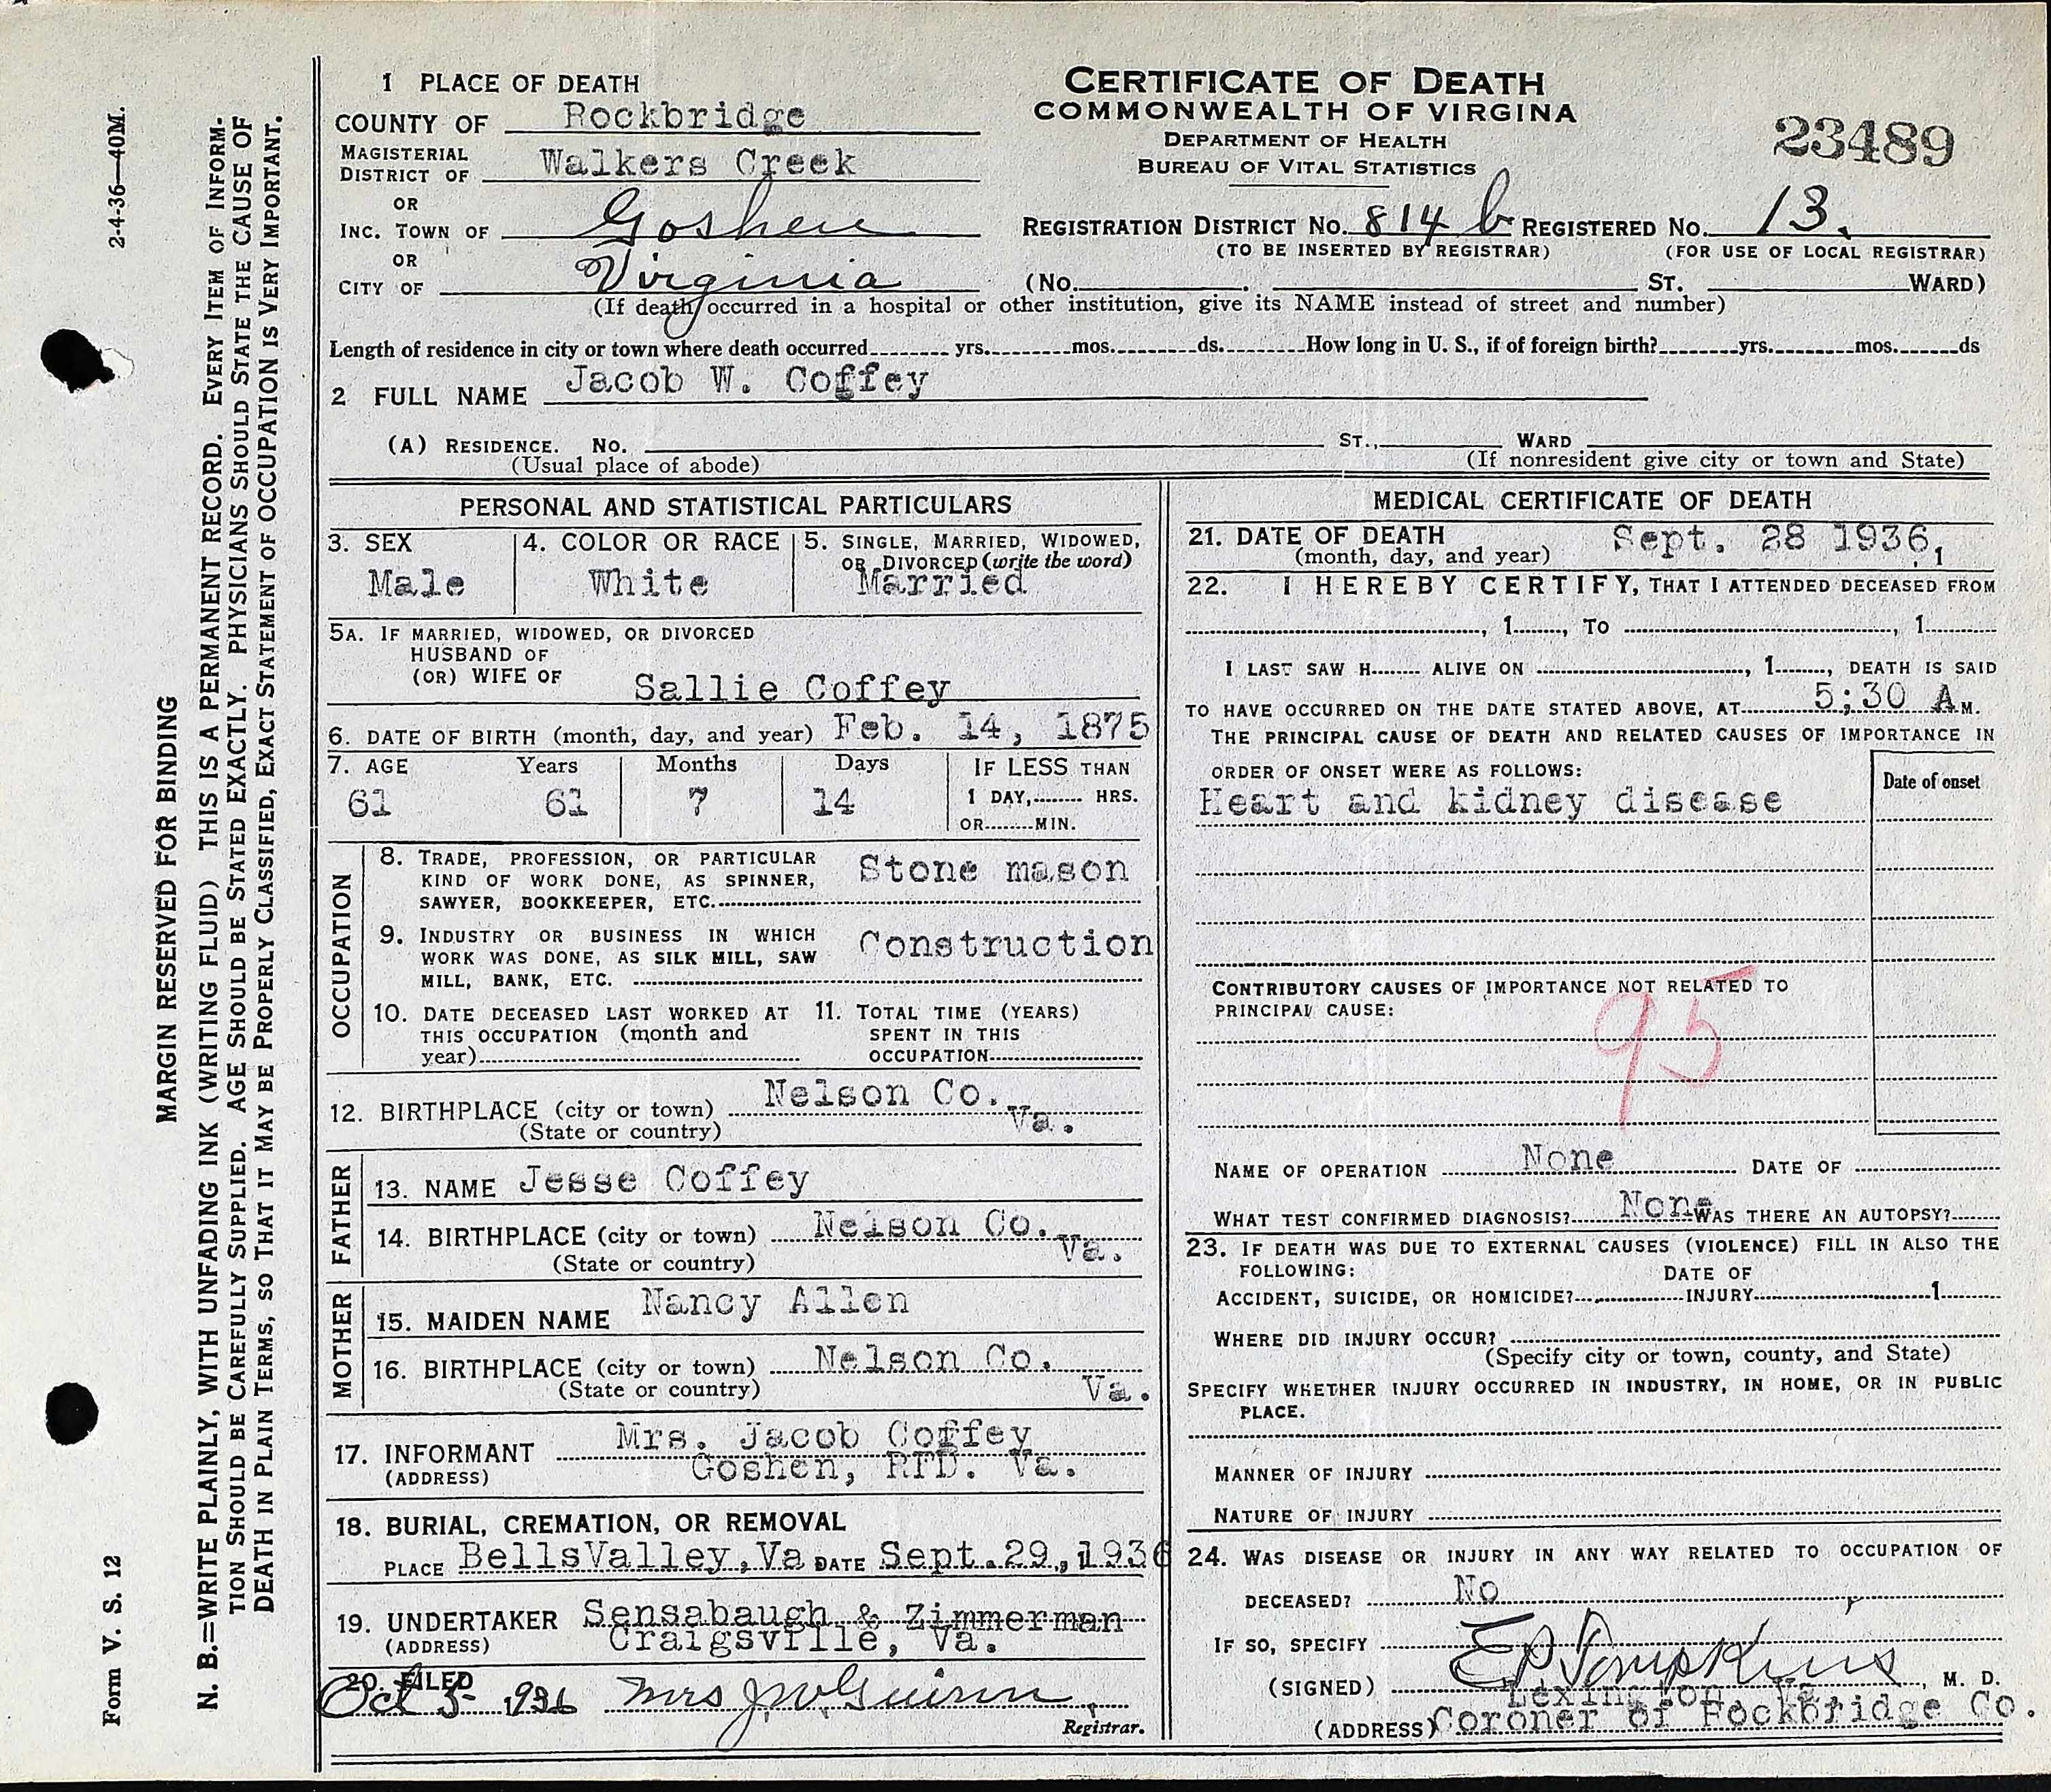 2-4-36—40M.
MARGIN RESERVED FOR BINDING
N. B.=WRITE PLAINLY, WITH UNFADING INK (WRITING FLUID) THIS IS A PERMANENT RECORD. EVERY ITEM OF INFORM-
TION SHOULD BE CAREFULLY SUPPLIED. AGE SHOULD BE STATED EXACTLY. PHYSICIANS SHOULD STATE THE CAUSE OF
DEATH IN PLAIN TERMS, SO THAT IT MAY BE PROPERLY CLASSIFIED, EXACT STATEMENT OF OCCUPATION IS VERY IMPORTANT.
Form V. S. 12
CERTIFICATE OF DEATH
COMMONWEALTH OF VIRGINA
DEPARTMENT OF HEALTH
BUREAU OF VITAL STATISTICS
23489
1 PLACE OF DEATH
COUNTY OF Rockbridge
MAGISTERIAL
DISTRICT OF Walkers Creek
OR
INC. TOWN OF Goshen
OR
CITY OF Virginia
REGISTRATION DISTRICT No. 814 b REGISTERED No. 13.
(TO BE INSERTED BY REGISTRAR) (FOR USE OF LOCAL REGISTRAR)
(No. ST. WARD)
(If death occurred in a hospital or other institution, give its NAME instead of street and number)
Length of residence in city or town where death occurred yrs. mos. ds. How long in U. S., if of foreign birth? yrs. mos. ds
2 FULL NAME Jacob W. Coffey
(A) RESIDENCE. No. ST., WARD
(Usual place of abode) (If nonresident give city or town and State)
PERSONAL AND STATISTICAL PARTICULARS
3. SEX 4. COLOR OR RACE 5. SINGLE, MARRIED, WIDOWED,
OR DIVORCED (write the word)
Male White Married
5A. IF MARRIED, WIDOWED, OR DIVORCED
HUSBAND OF
(OR) WIFE OF Sallie Coffey
6. DATE OF BIRTH (month, day, and year) Feb. 14, 1875
7. AGE Years Months Days IF LESS THAN
61 61 7 14 1 DAY, HRS.
OR MIN.
OCCUPATION
8. TRADE, PROFESSION, OR PARTICULAR
KIND OF WORK DONE, AS SPINNER,
SAWYER, BOOKKEEPER, ETC. Stone mason
9. INDUSTRY OR BUSINESS IN WHICH
WORK WAS DONE, AS SILK MILL, SAW
MILL, BANK, ETC. Construction
10. DATE DECEASED LAST WORKED AT
THIS OCCUPATION (month and
year)
11. TOTAL TIME (YEARS)
SPENT IN THIS
OCCUPATION
12. BIRTHPLACE (city or town) Nelson Co.
(State or country) Va.
FATHER
13. NAME Jesse Coffey
14. BIRTHPLACE (city or town) Nelson Co.
(State or country) Va.
MOTHER
15. MAIDEN NAME Nancy Allen
16. BIRTHPLACE (city or town) Nelson Co.
(State or country) Va.
17. INFORMANT Mrs. Jacob Coffey
(ADDRESS) Goshen, RFD. Va.
18. BURIAL, CREMATION, OR REMOVAL
PLACE BellsValley, Va DATE Sept. 29, 1936
19. UNDERTAKER Sensabaugh & Zimmerman
(ADDRESS) Craigsville, Va.
20. FILED
Oct 5- 1936 Mrs J. W. Guinn
Registrar.
MEDICAL CERTIFICATE OF DEATH
21. DATE OF DEATH Sept. 28 1936, 1
(month, day, and year)
22. I HEREBY CERTIFY, THAT I ATTENDED DECEASED FROM
, 1 , TO , 1
I LAST SAW H ALIVE ON , 1 , DEATH IS SAID
TO HAVE OCCURRED ON THE DATE STATED ABOVE, AT 5;30 A M.
THE PRINCIPAL CAUSE OF DEATH AND RELATED CAUSES OF IMPORTANCE IN
ORDER OF ONSET WERE AS FOLLOWS:
Date of onset
Heart and kidney disease
CONTRIBUTORY CAUSES OF IMPORTANCE NOT RELATED TO
PRINCIPAL CAUSE:
95
NAME OF OPERATION None DATE OF
WHAT TEST CONFIRMED DIAGNOSIS? None WAS THERE AN AUTOPSY?
23. IF DEATH WAS DUE TO EXTERNAL CAUSES (VIOLENCE) FILL IN ALSO THE
FOLLOWING: DATE OF
ACCIDENT, SUICIDE, OR HOMICIDE? INJURY 1
WHERE DID INJURY OCCUR?
(Specify city or town, county, and State)
SPECIFY WHETHER INJURY OCCURRED IN INDUSTRY, IN HOME, OR IN PUBLIC
PLACE.
MANNER OF INJURY
NATURE OF INJURY
24. WAS DISEASE OR INJURY IN ANY WAY RELATED TO OCCUPATION OF
DECEASED? No
IF SO, SPECIFY
(SIGNED) E P Tompkins, M. D.
Lexington, Va.
(ADDRESS) Coroner of Rockbridge Co.